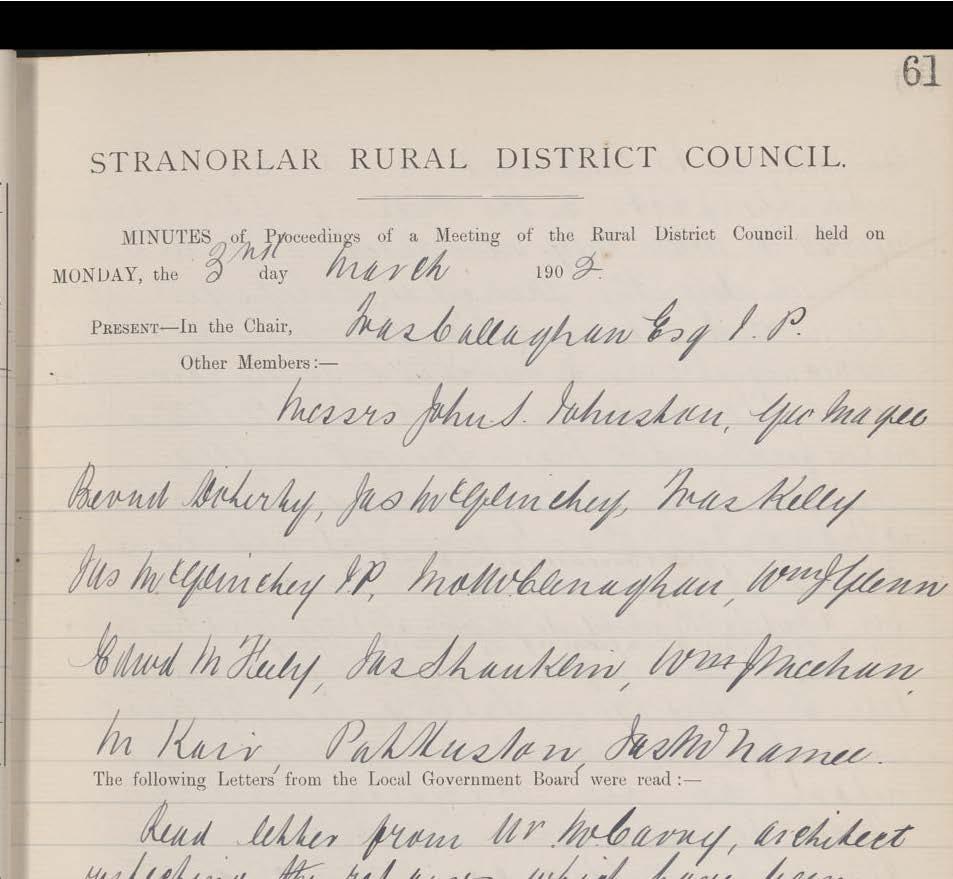 61
STRANORLAR RURAL DISTRICT COUNCIL.
MINUTES of Proceedings of a Meeting of the Rural District Council held on
MONDAY, the 3rd day March 1902.
PRESENT—In the Chair, Callaghan Esq J. P.
Other Members:—
Messrs John S. Johnston, Geo Magee
Bernd Doherty, Jas McGlinchey, Kelly
Jas McGlinchey JP, McClenaghan, Wm J Glenn
Edwd McFeely, Jas Shanklin, Wm J Meehan,
M Kair, Pat Huston, Jas McNamee.
The following Letters from the Local Government Board were read:—
Read letter from Mr McCarvy, architect
the which have been